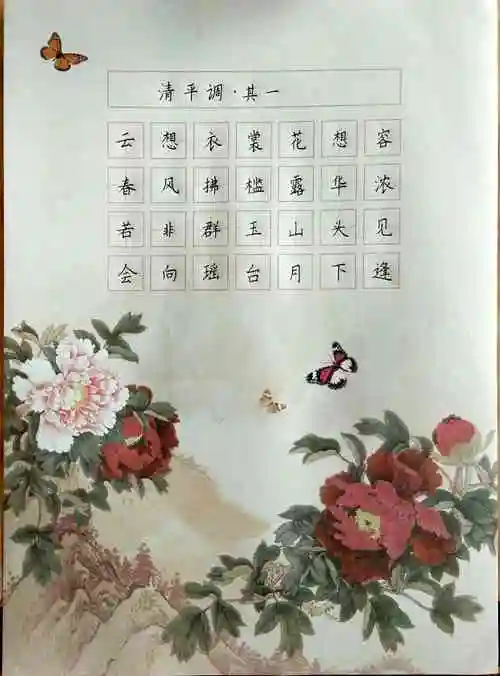 清平调·其一
云想衣裳花想容
春风拂槛露华浓
若非群玉山头见
会向瑶台月下逢